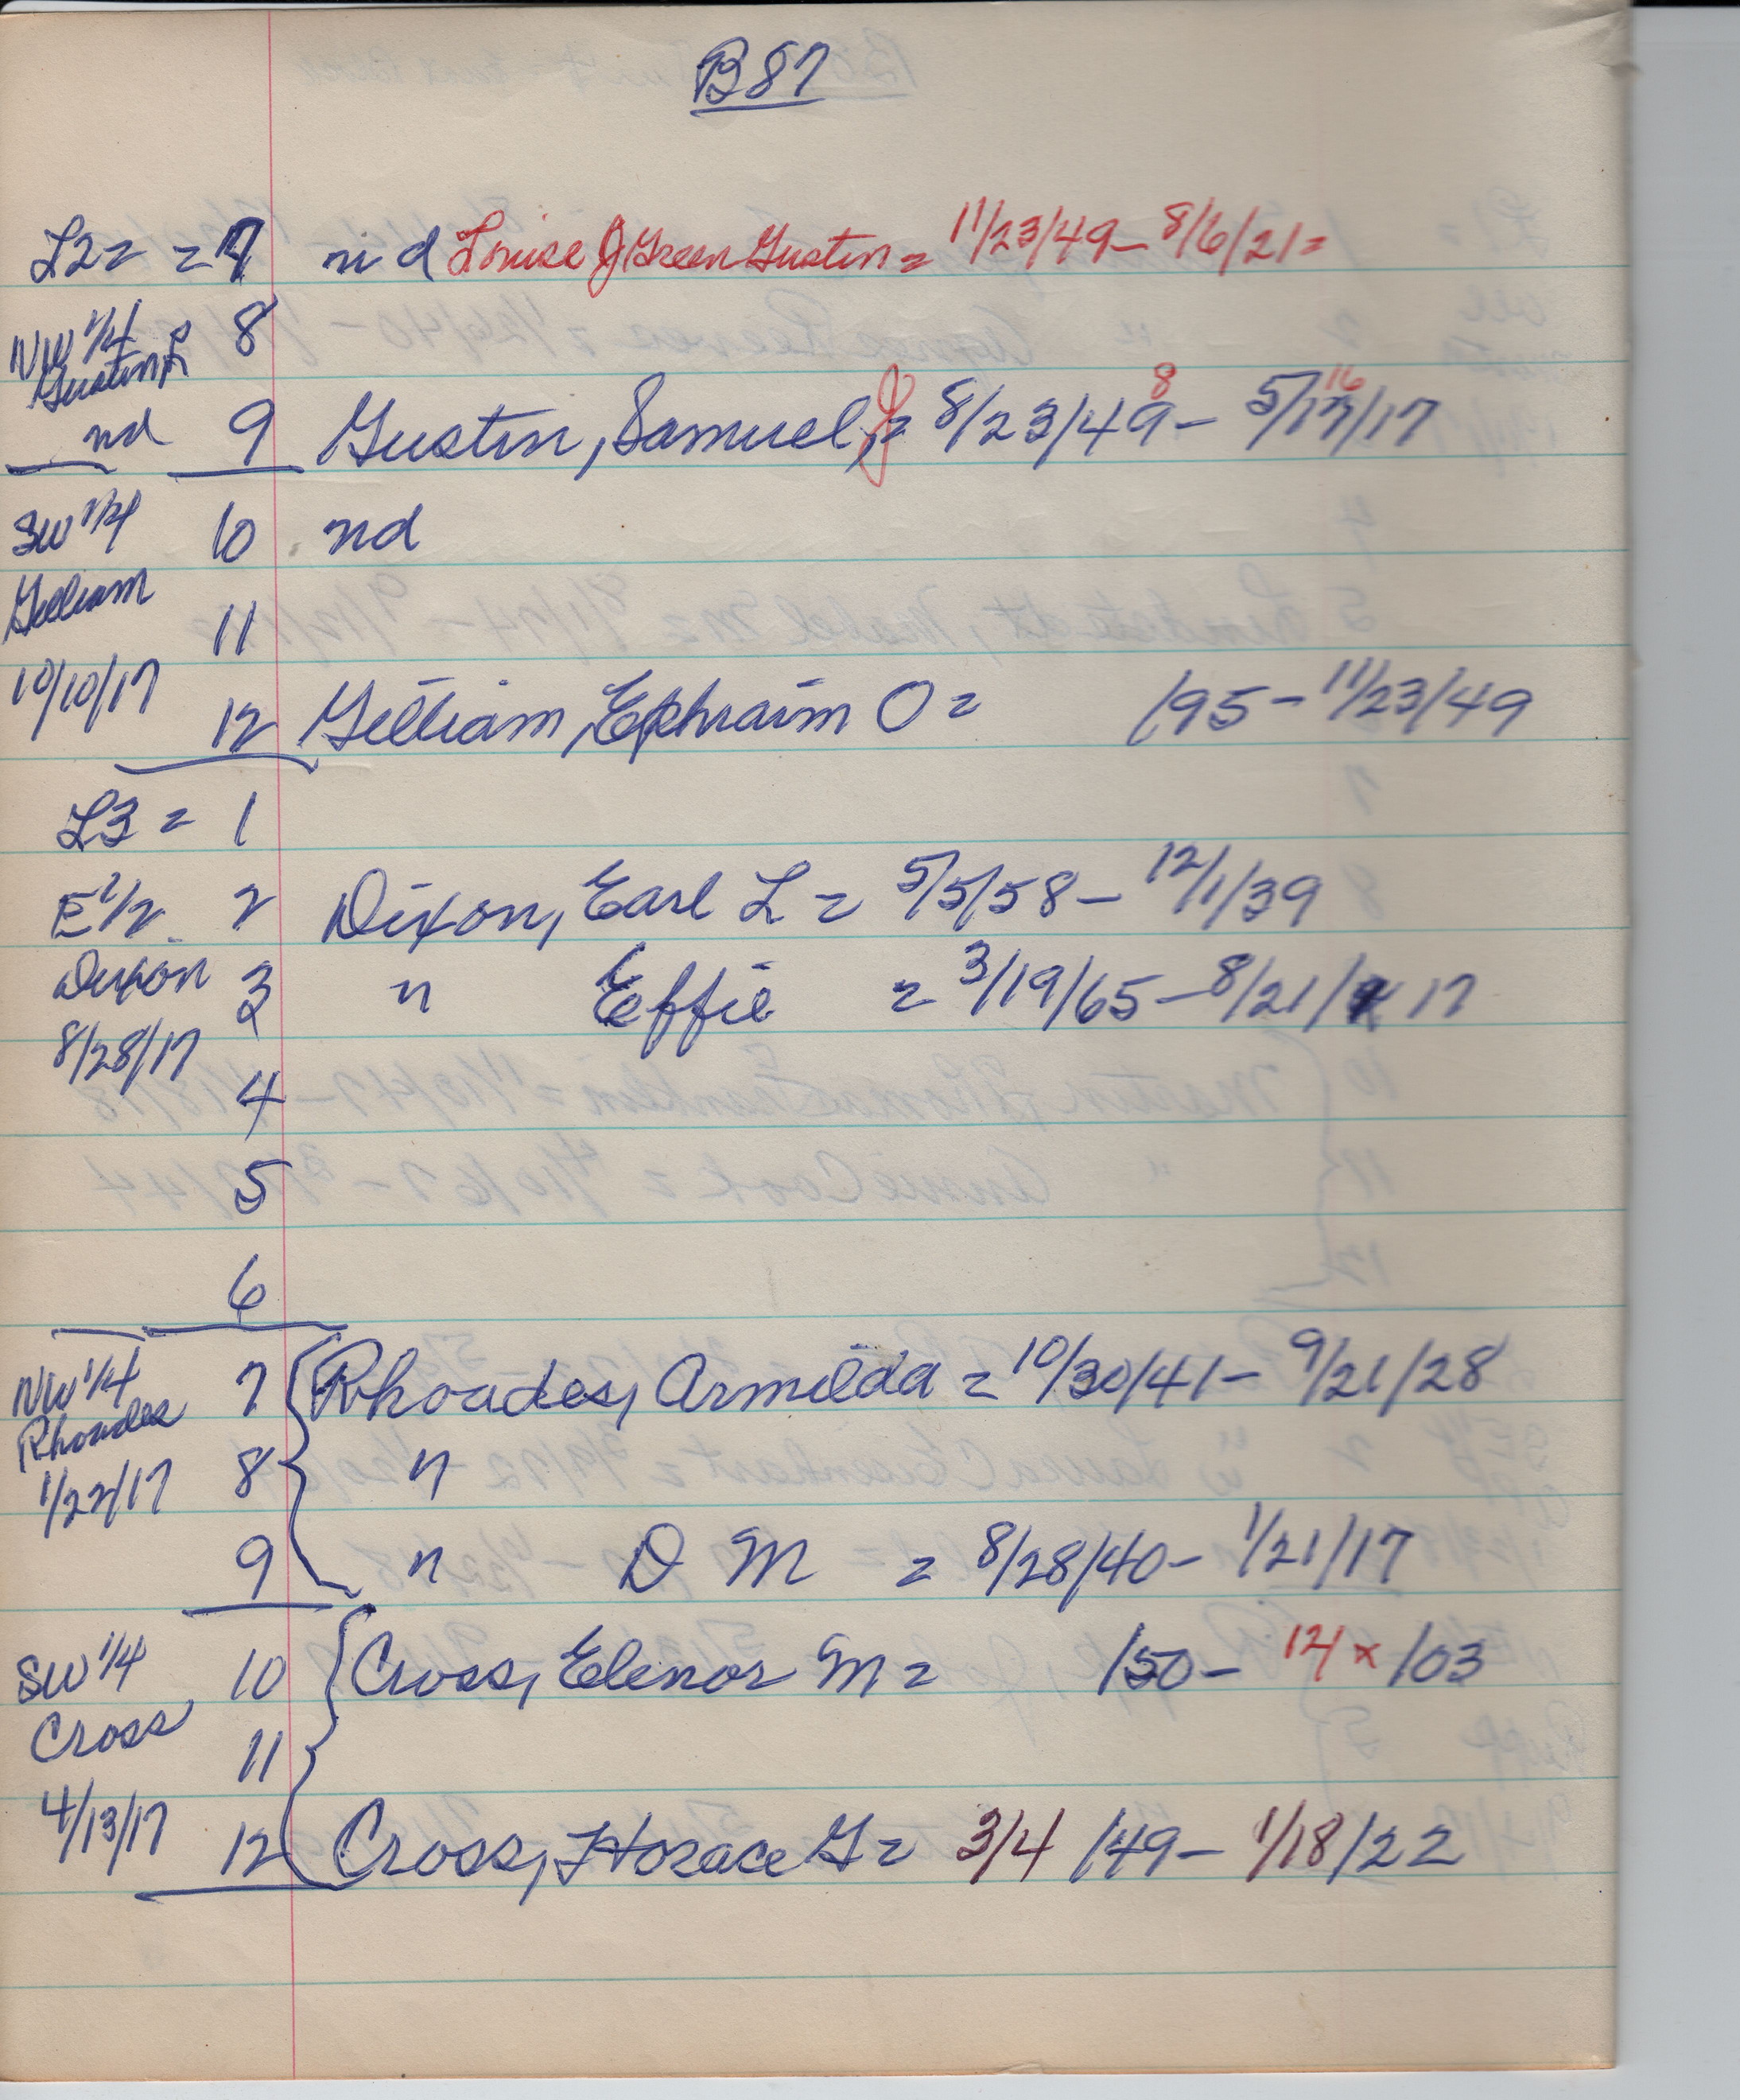 B 87
L2 = = 7 nd Louise J Green Gustin = 11/23/49 – 8/6/21 =
NW 1/4 8
Gustin
nd 9 Gustin, Samuel, J = 8/23/49 8 – 5/17/17 16
SW 1/4 10 nd
Gilliam 11
10/10/17 12 Gilliam, Ephraim O = /95 – 11/23/49
L3 = 1
E 1/2 2 Dixon, Earl L = 5/5/58 – 12/1/39
Dixon 3 " Effie = 3/19/65 – 8/21/17
8/28/17 4
5
6
NW 1/4 7 Rhoades, Armilda = 10/30/41 – 9/21/28
Rhoades
1/22/17 8 "
9 " D M = 8/28/40 – 1/21/17
SW 1/4 10 Cross, Elenor M = /50 – 12/ x /03
Cross 11
4/13/17 12 Cross, Horace G = 3/4 /49 – 1/18/22